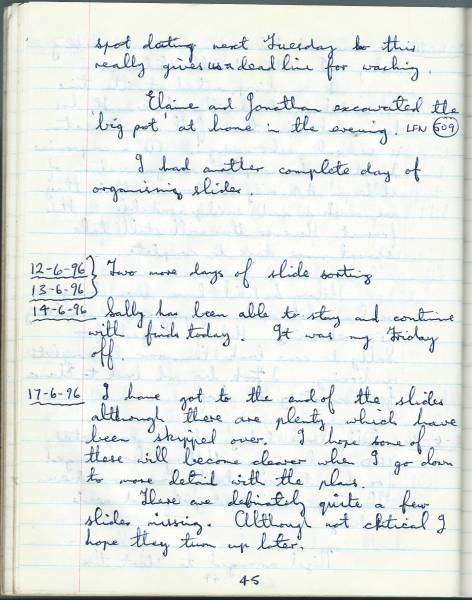 spot dating next Tuesday so this
really gives us a deadline for washing.
Elaine and Jonathan excavated the
'big pot' at home in the evening. LFN 609
I had another complete day of
organising slides.
12-6-96 } Two more days of slide sorting
13-6-96
14-6-96 Sally has been able to stay and continue
with finds today. It was my Friday
off.
17-6-96 I have got to the end of the slides
although there are plenty which have
been skipped over. I hope some of
these will become clearer when I go down
to more detail with the plans.
There are definately quite a few
slides missing. Although not critical I
hope they turn up later.
45